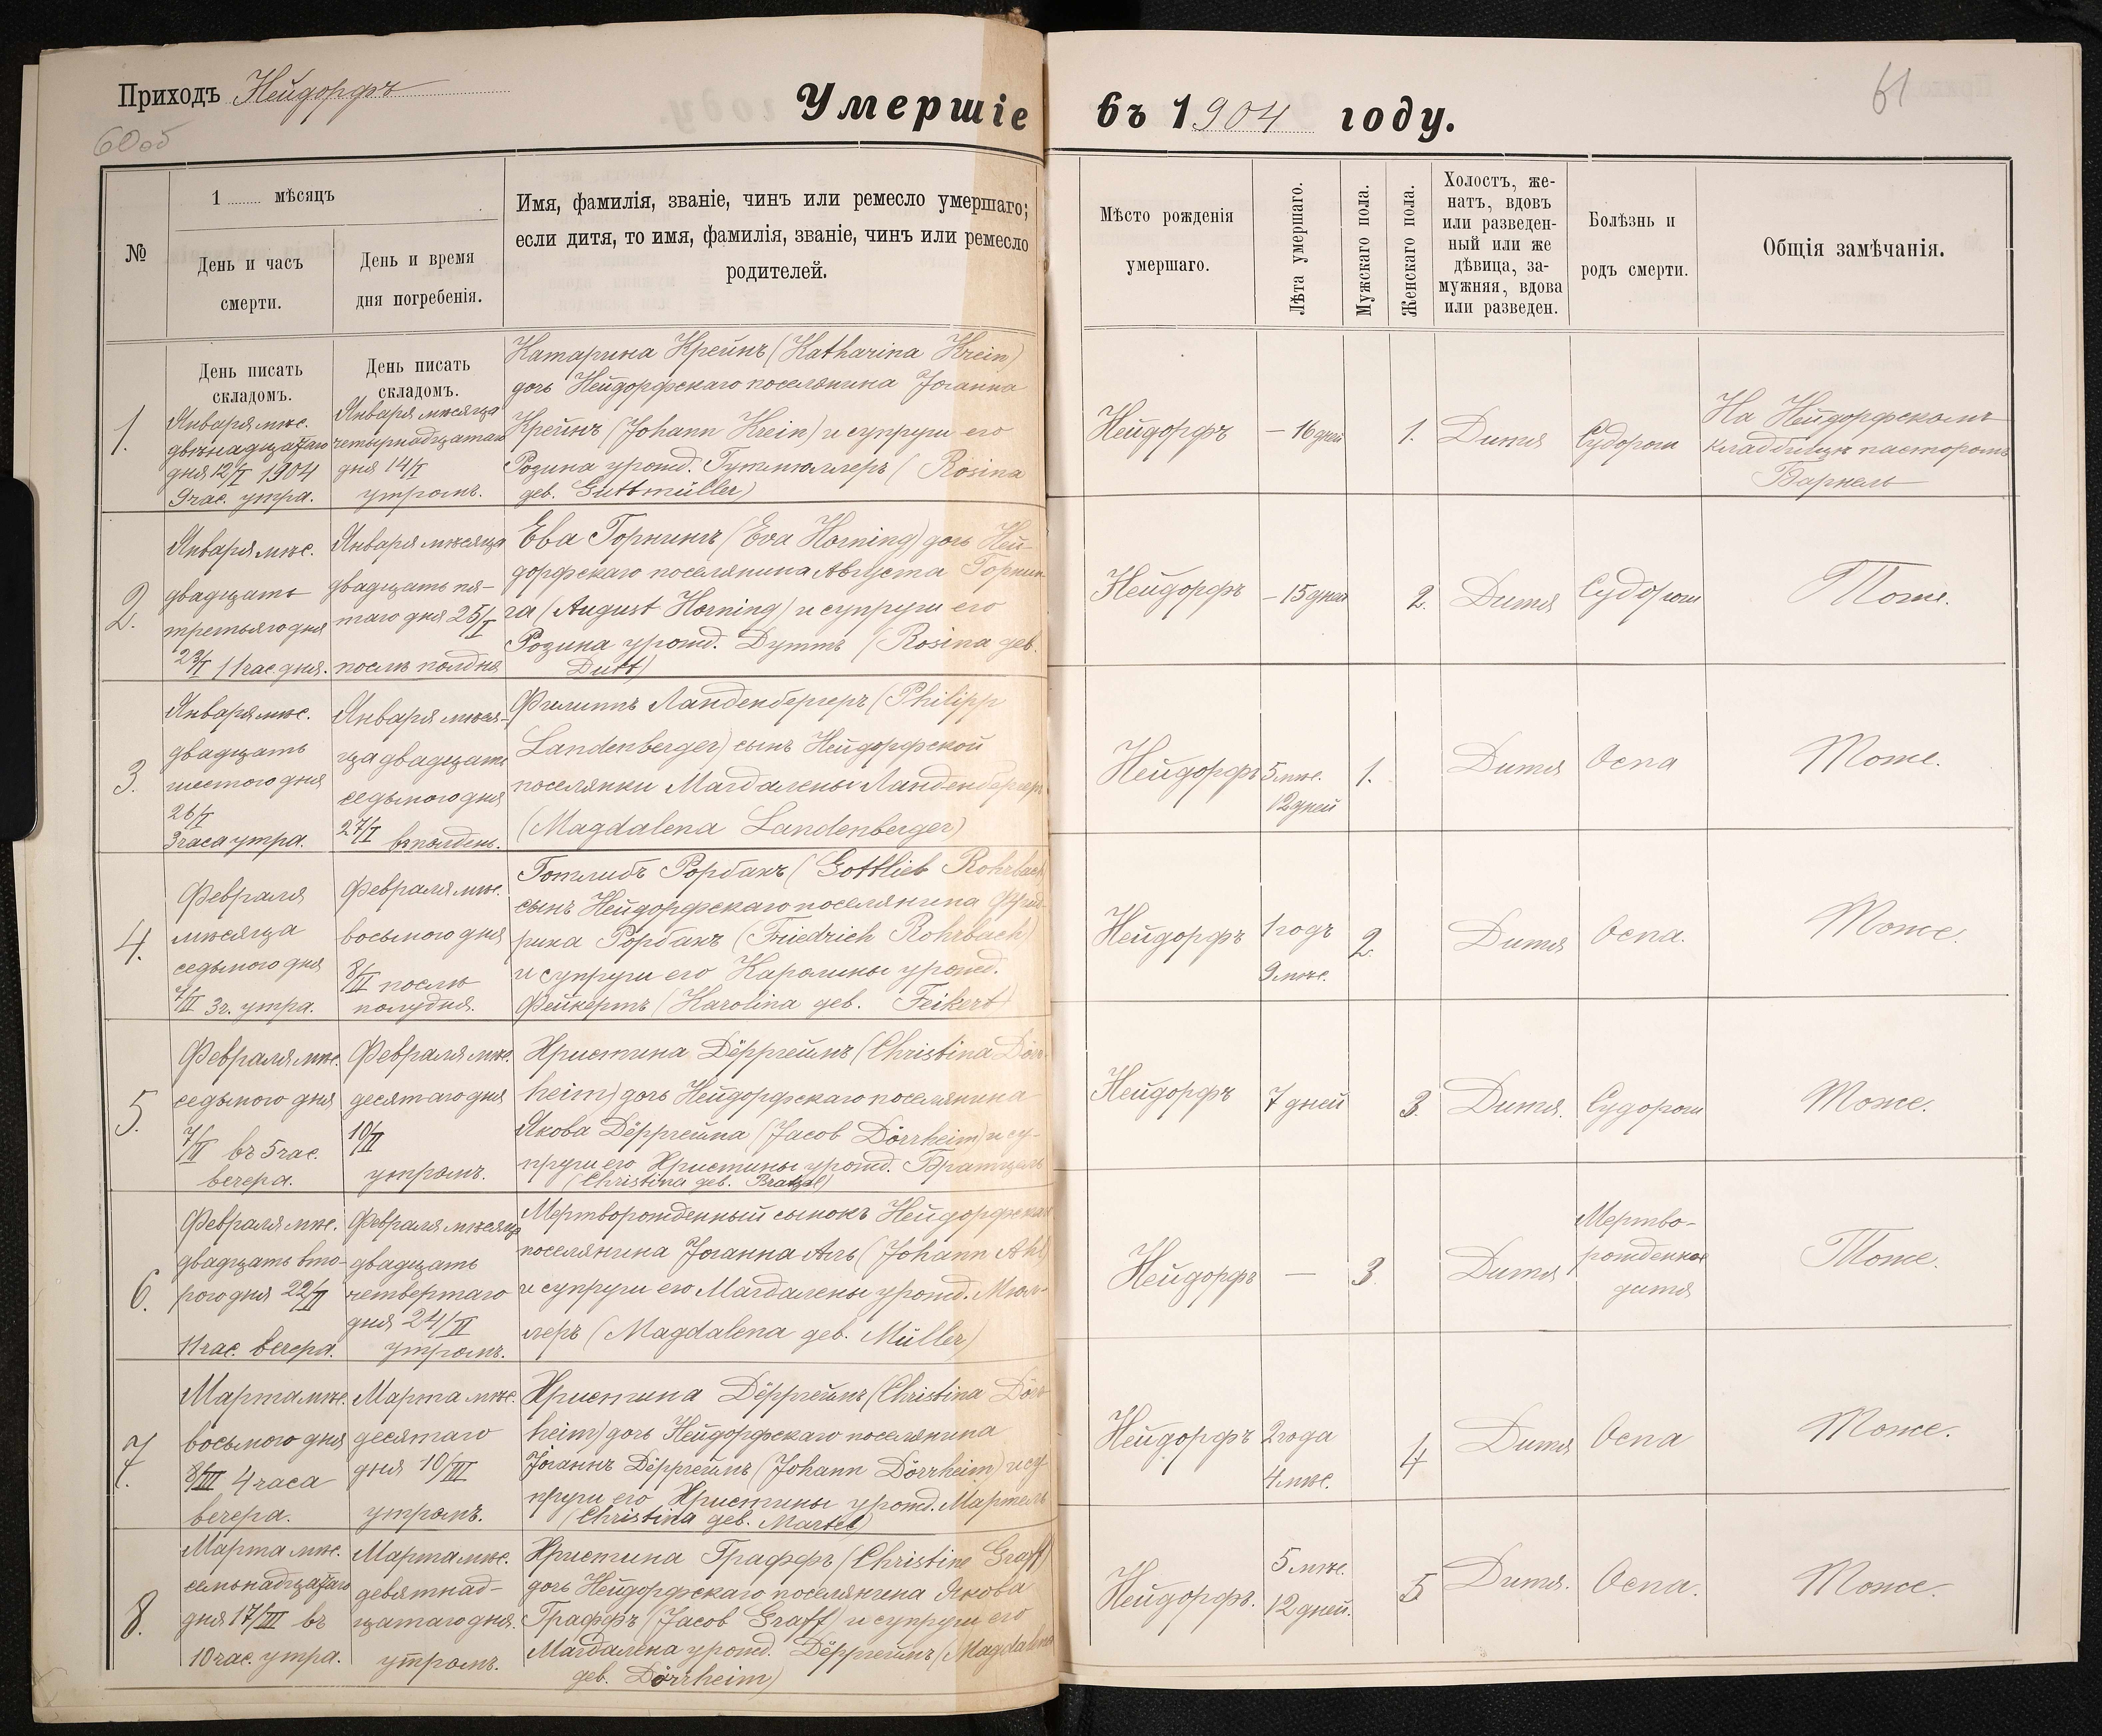 Приходъ Нейдорфъ
60об
Умершіе въ 1904 году.
61
№
1 ........ мѣсяцъ
День и часъ
смерти.
День и время
дня погребенія.
Имя, фамилія, званіе, чинъ или ремесло умершаго;
если дитя, то имя, фамилія, званіе, чинъ или ремесло
родителей.
Мѣсто рожденія
умершаго.
Лѣта умершаго.
Мужскаго пола.
Женскаго пола.
Холостъ, же-
натъ, вдовъ
или разведен-
ный или же
дѣвица, за-
мужняя, вдова
или разведен.
Болѣзнь и
родъ смерти.
Общія замѣчанія.
День писать
складомъ.
День писать
складомъ.
1.
Января мѣс.
двѣнадцатаго
дня 12/I 1904
9 час. утра.
Января мѣсяца
четырнадцатаго
дня 14/I
утромъ.
Катарина Крейнъ (Katharina Krein)
дочь Нейдорфскаго поселянина Іоганна
Крейнъ (Johann Krein) и супруги его
Розина урожд. Гутмюллеръ (Rosina
geb. Guttmüller)
Нейдорфъ
— 16 дней
1.
Дитя
Судороги
На Нейдорфскомъ
кладбищѣ пасторомъ
2.
Января мѣс.
двадцать
третьяго дня
23/I 11 час. дня.
Января мѣсяца
двадцать пя-
таго дня 25/I
послѣ полдня
Ева Горнингъ (Eva Horning) дочь Ней-
дорфскаго поселянина Августа Горнин-
га (August Horning) и супруги его
Розина урожд. Дуттъ (Rosina geb.
Dutt)
Нейдорфъ
— 15 дней
2.
Дитя
Судороги
Тоже.
3.
Января мѣс.
двадцать
шестого дня
26/I
3 часа утра.
Января мѣся-
ца двадцать
седьмого дня
27/I въ полдень.
Филиппъ Ланденбергеръ (Philipp
Landenberger) сынъ Нейдорфской
поселянки Магдалены Ланденбергеръ
(Magdalena Landenberger)
Нейдорфъ
5 мѣс.
12 дней
1.
Дитя
Оспа
Тоже.
4.
Февраля
мѣсяца
седьмого дня
7/II 3 ч. утра.
Февраля мѣс.
восьмого дня
8/II послѣ
полудня.
Готлибъ Рорбахъ (Gottlieb Rohrbach)
сынъ Нейдорфскаго поселянина Фрид-
риха Рорбахъ (Friedrich Rohrbach)
и супруги его Каролины урожд.
Фейкертъ (Karolina geb. Feikert)
Нейдорфъ
1 годъ
9 мѣс.
2.
Дитя
Оспа.
Тоже.
5.
Февраля мѣс.
седьмого дня
7/II въ 5 час.
вечера.
Февраля мѣс.
десятаго дня
10/II
утромъ.
Христина Дёрргеймъ (Christina Dörr-
heim) дочь Нейдорфскаго поселянина
Якова Дёрргейма (Jacob Dörrheim) и су-
пруги его Христины урожд. Братцель
(Christina geb. Bratzel)
Нейдорфъ
7 дней
3.
Дитя.
Судороги
Тоже.
6.
Февраля мѣс.
двадцать вто-
рого дня 22/II
11 час. вечера.
Февраля мѣсяца
двадцать
четвертаго
дня 24/II
утромъ.
Мертворожденный сынокъ Нейдорфскаго
поселянина Іоганна Аль (Johann Ahl)
и супруги его Магдалены урожд. Мюл-
леръ (Magdalena geb. Müller)
Нейдорфъ
—
3.
Дитя
Мертво-
рожденное
дитя
Тоже.
7.
Марта мѣс.
восьмого дня
8/III 4 часа
вечера.
Марта мѣс.
десятаго
дня 10/III
утромъ.
Христина Дёрргеймъ (Christina Dörr-
heim) дочь Нейдорфскаго поселянина
Іоганнъ Дёрргеймъ (Johann Dörrheim) и су-
пруги его Христины урожд. Мартель
(Christina geb. Martel)
Нейдорфъ
2 года
4 мѣс.
4
Дитя
Оспа
Тоже.
8.
Марта мѣс.
семнадцатаго
дня 17/III въ
10 час. утра.
Марта мѣс.
девятнад-
цатаго дня.
утромъ.
Христина Граффъ (Christine Graff)
дочь Нейдорфскаго поселянина Якова
Граффъ (Jacob Graff) и супруги его
Магдалена урожд. Дёрргеймъ (Magdalena
geb. Dörrheim)
Нейдорфъ.
5 мѣс.
12 дней.
5
Дитя.
Оспа.
Тоже.